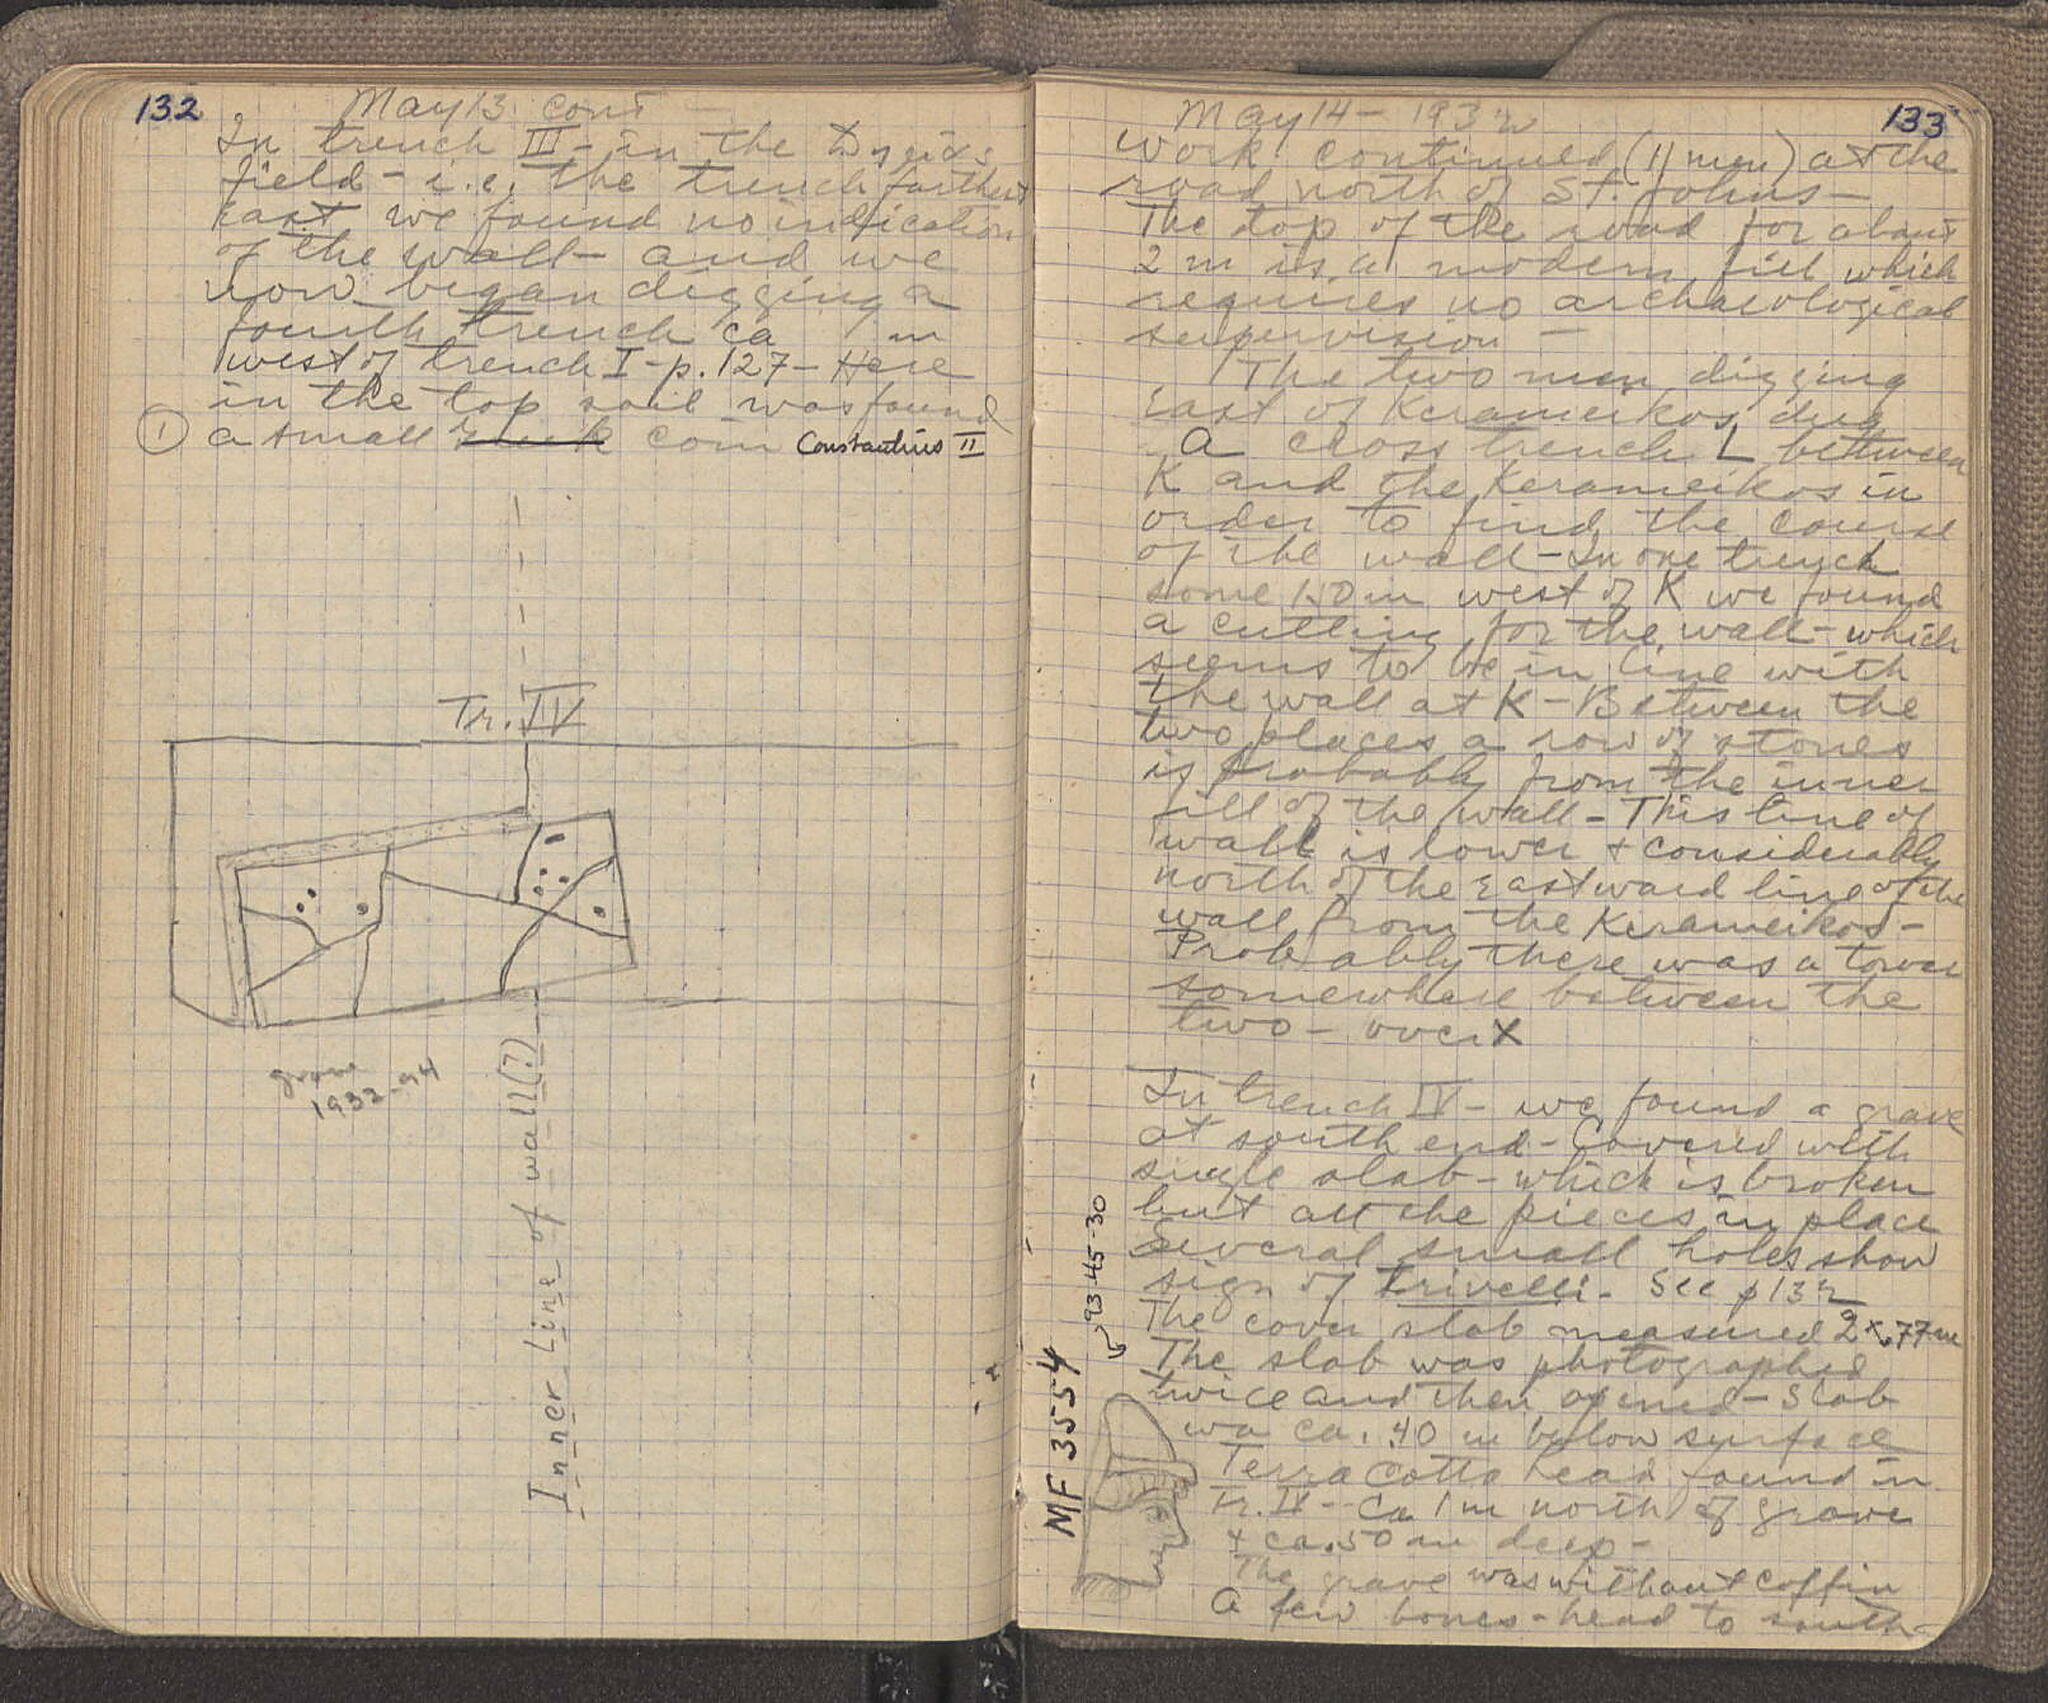 132
May 13 cont -
In trench III - in the
field - i.e. the trench farthest
east we found no indication
of the wall - and we
now began digging a
fourth trench ca m
west of trench I - p. 127 - Here
in the top soil was found
① a small coin Constantius II
Tr. IV
grave
Inner Line of wall (?)
133
May 14 - 1932
Work continued (11 men) at the
road north of St. Johns -
The top of the road for about
2 m is a modern fill which
requires no archaeological
supervision -
The two men digging
East of Kerameikos dug
a cross trench L between
K and the Kerameikos in
order to find the course
of the wall - In one trench
some m west of K we found
a cutting for the wall - which
seems to be in line with
the wall at K - Between the
two places a row of stones
is probably from the inner
fill of the wall - This line of
wall is lower + considerably
north of the eastward line of the
wall from the Kerameikos -
Probably there was a tower
somewhere between the
two - over X
In trench IV - we found a grave
at south end - Covered with
single slab - which is broken
but all the pieces in place
Several small holes show
sign of trivelli. See p 132
The cover slab measured 2 x .77 m
The slab was photographed
twice and then opened - Slab
wa ca. .40 m below surface
Terra Cotta head found in
Tr. IV - Ca 1 m north of grave
+ ca. .50 m deep -
The grave was without coffin
A few bones - head to south -
MF 3554
93-45-30